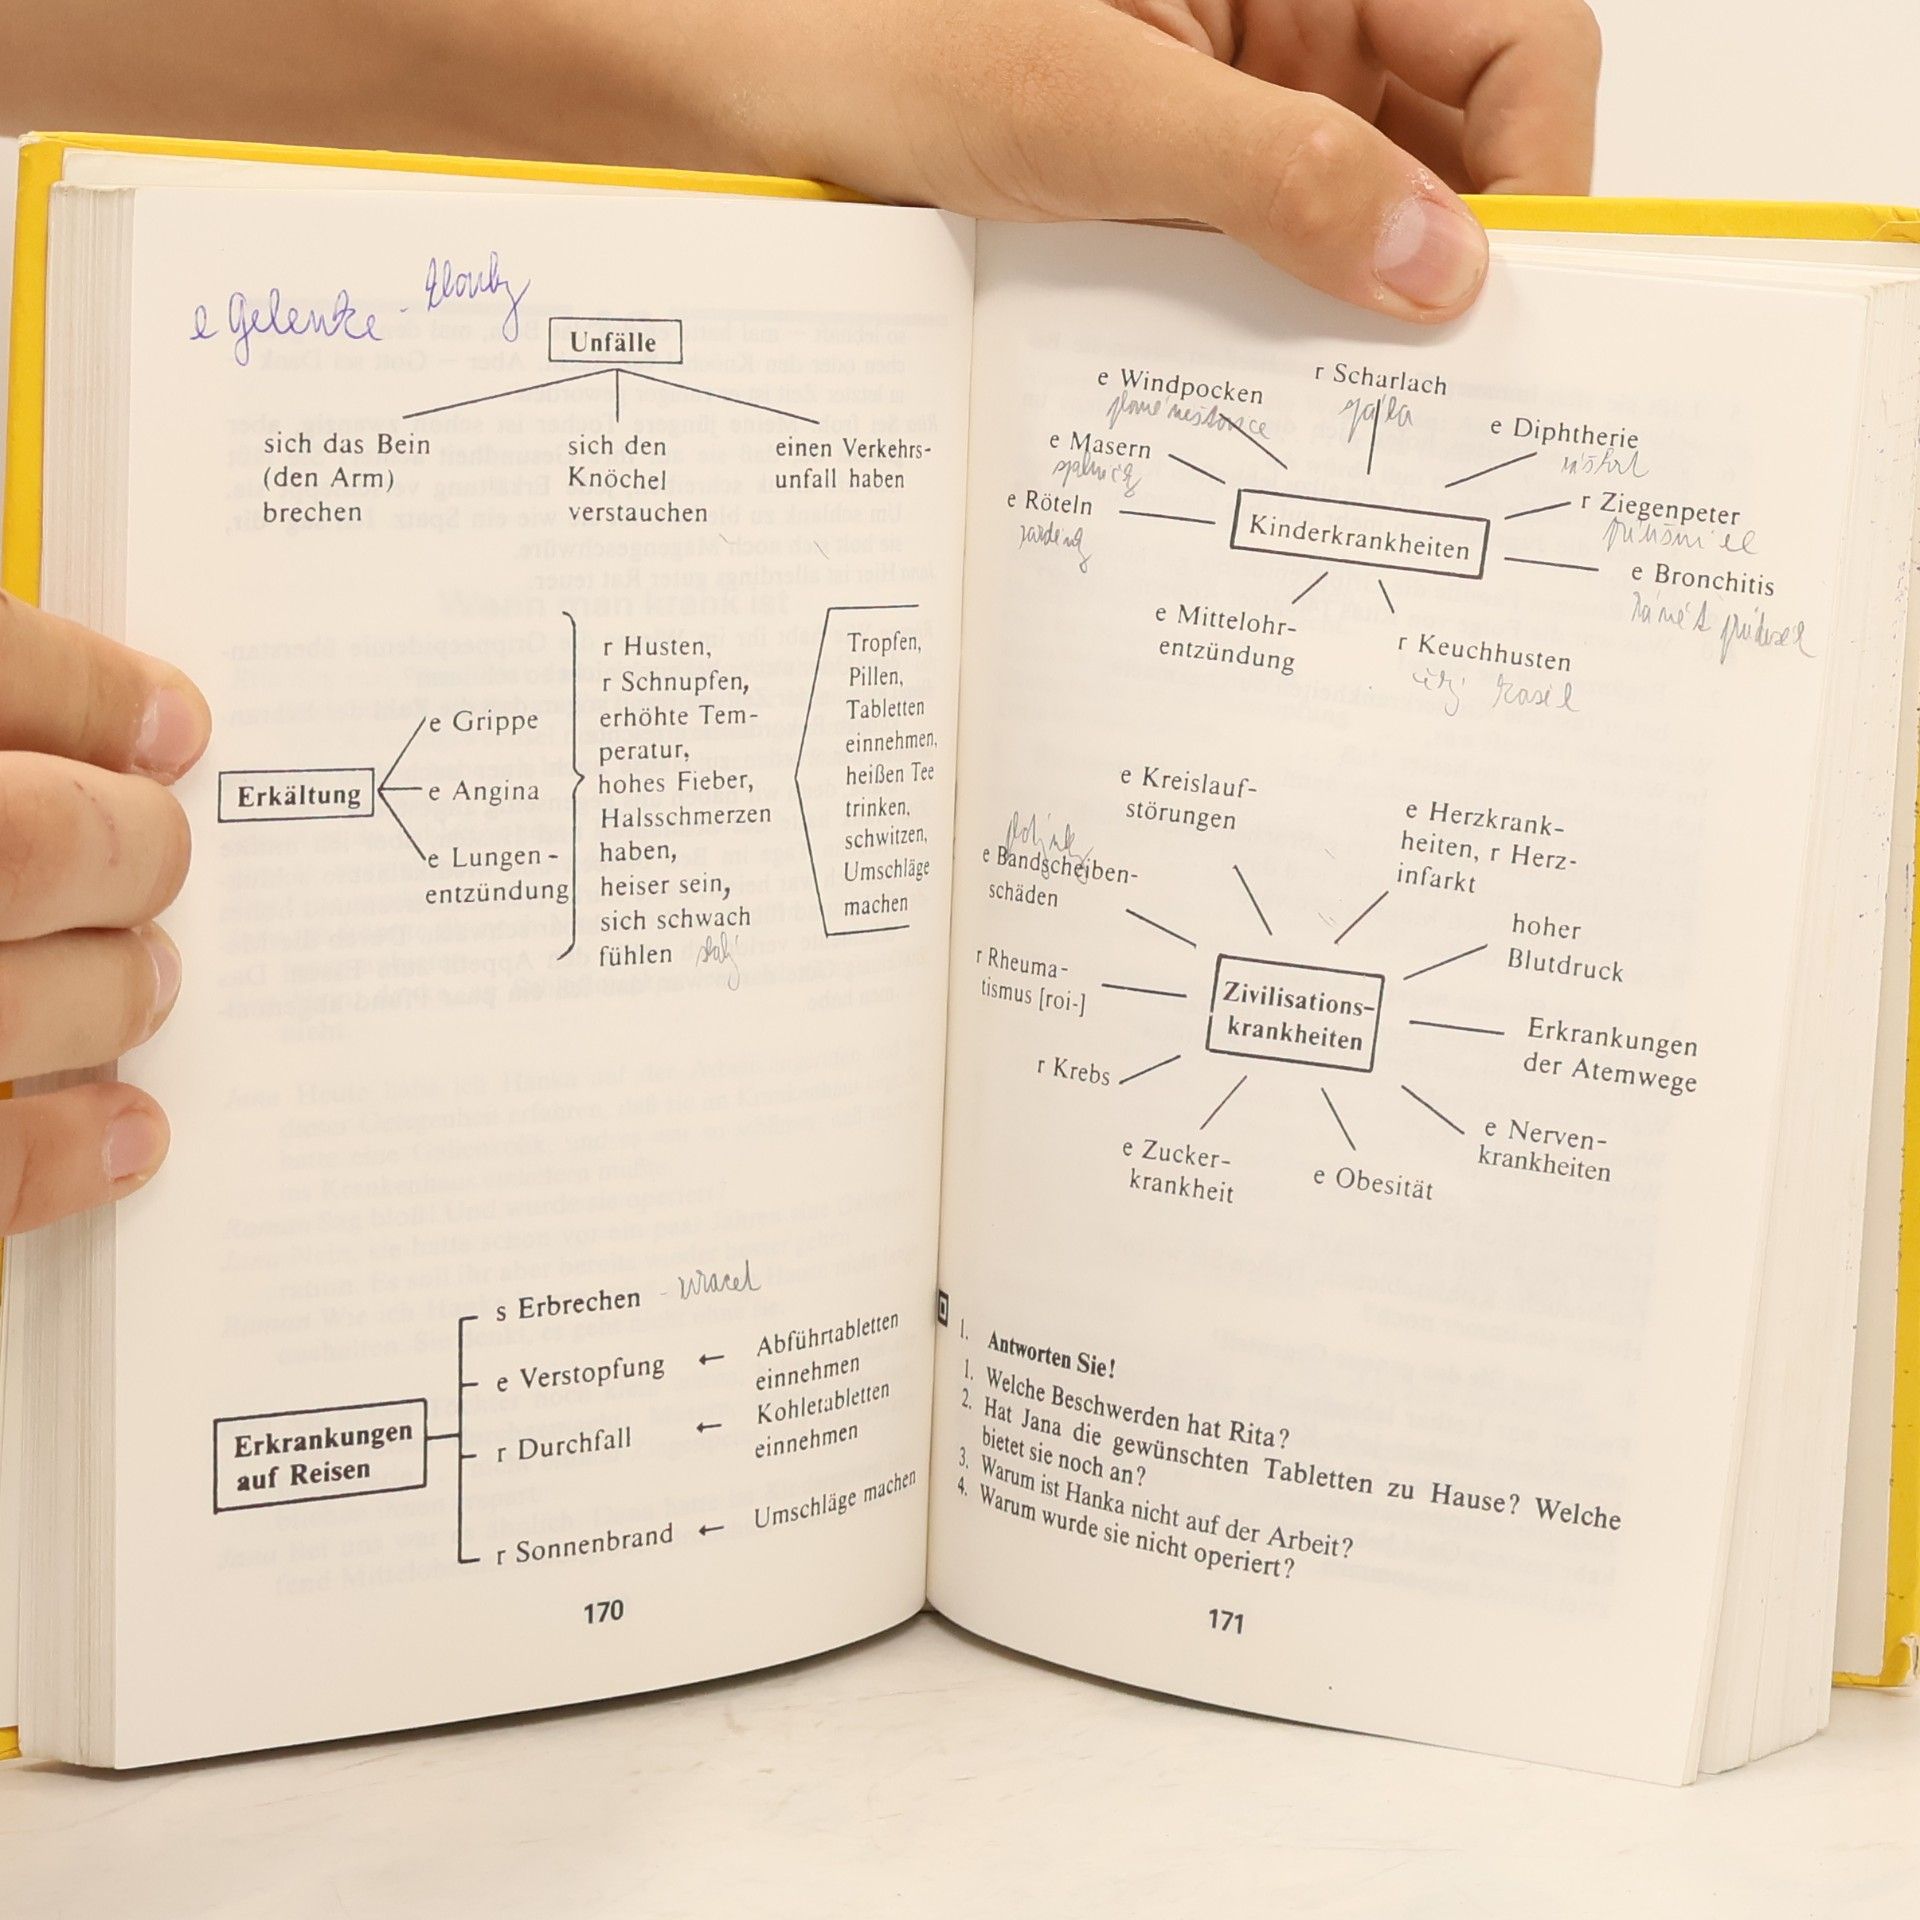 e Gelenke - klouby
Unfälle
sich das Bein
(den Arm)
brechen
sich den
Knöchel
verstauchen
einen Verkehrs-
unfall haben
Erkältung
e Grippe
e Angina
e Lungen-
entzündung
r Husten,
r Schnupfen,
erhöhte Tem-
peratur,
hohes Fieber,
Halsschmerzen
haben,
heiser sein,
sich schwach
fühlen
Tropfen,
Pillen,
Tabletten
einnehmen,
heißen Tee
trinken,
schwitzen,
Umschläge
machen
Erkrankungen
auf Reisen
s Erbrechen
e Verstopfung ← Abführtabletten
einnehmen
r Durchfall ← Kohletabletten
einnehmen
r Sonnenbrand ← Umschläge machen
170
e Windpocken
r Scharlach
e Diphtherie
e Masern
r Ziegenpeter
e Röteln
Kinderkrankheiten
e Bronchitis
zánět průdušek
e Mittelohr-
entzündung
r Keuchhusten
e Kreislauf-
störungen
e Herzkrank-
heiten, r Herz-
infarkt
e Bandscheiben-
schäden
hoher
Blutdruck
r Rheuma-
tismus [roi-]
Zivilisations-
krankheiten
Erkrankungen
der Atemwege
r Krebs
e Zucker-
krankheit
e Obesität
e Nerven-
krankheiten
1. Antworten Sie!
1. Welche Beschwerden hat Rita?
2. Hat Jana die gewünschten Tabletten zu Hause? Welche
bietet sie noch an?
3. Warum ist Hanka nicht auf der Arbeit?
4. Warum wurde sie nicht operiert?
171